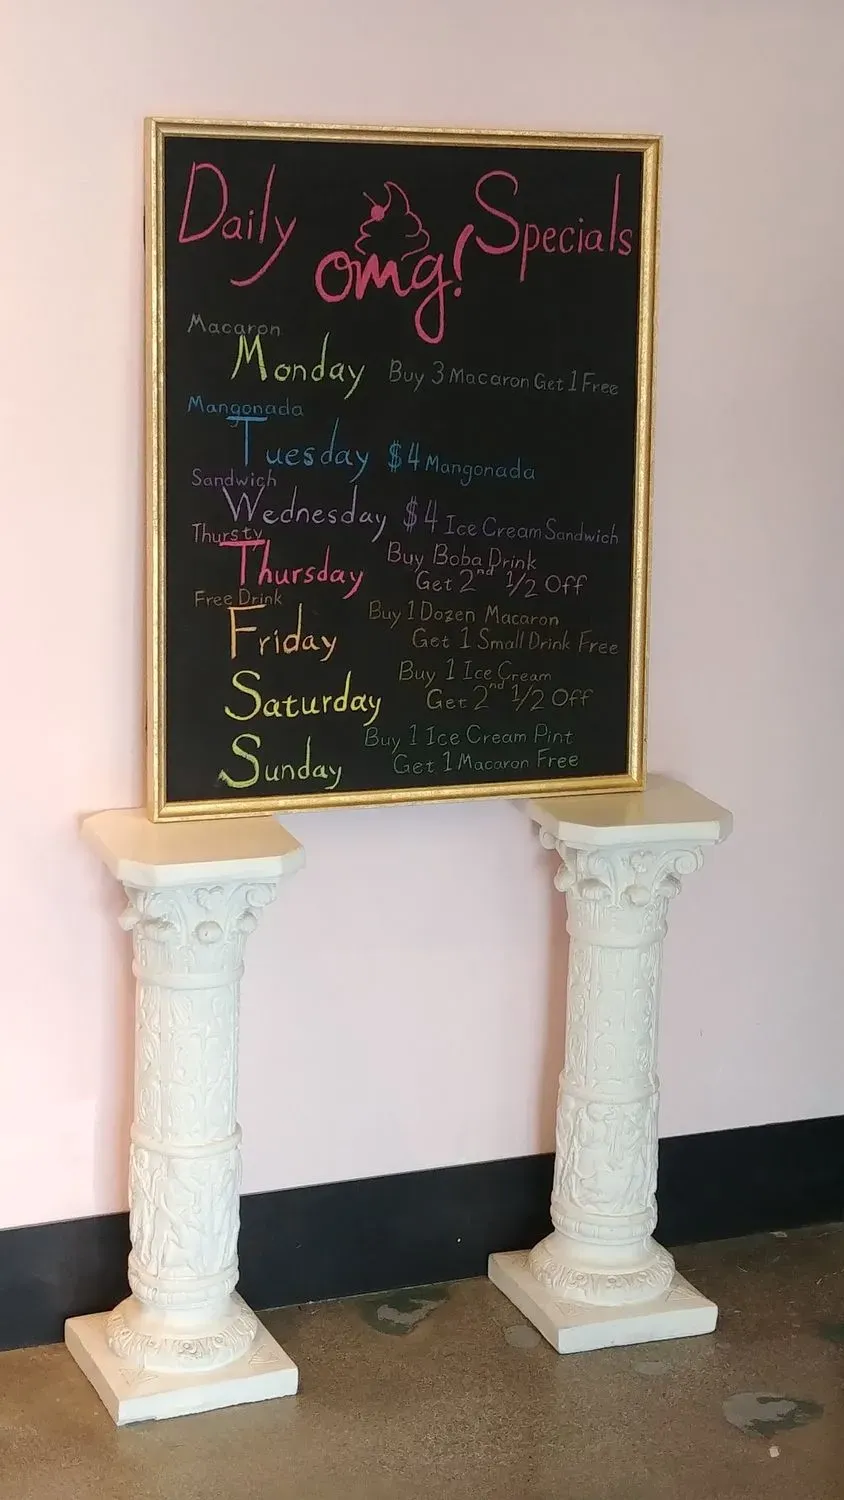 Daily omg! Specials
Macaron
Monday Buy 3 Macaron Get 1 Free
Mangonada
Tuesday $4 Mangonada
Sandwich
Wednesday $4 Ice Cream Sandwich
Thursty
Thursday Buy Boba Drink
Get 2nd 1/2 Off
Free Drink
Friday Buy 1 Dozen Macaron
Get 1 Small Drink Free
Saturday Buy 1 Ice Cream
Get 2nd 1/2 Off
Sunday Buy 1 Ice Cream Pint
Get 1 Macaron Free